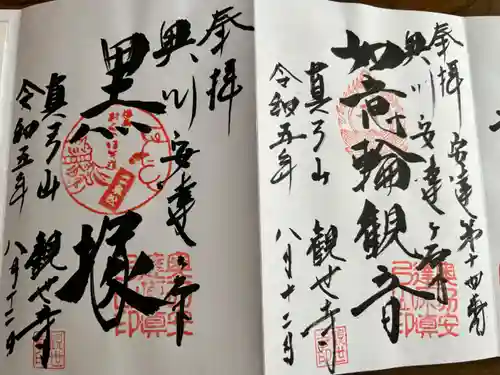 奉拝
奥川安達ヶ原
黒塚
真弓山 観世寺
令和五年 八月十二日
奉拝 安達第十四番
奥川安達ヶ原
如意輪観音
真弓山 観世寺
令和五年 八月十二日